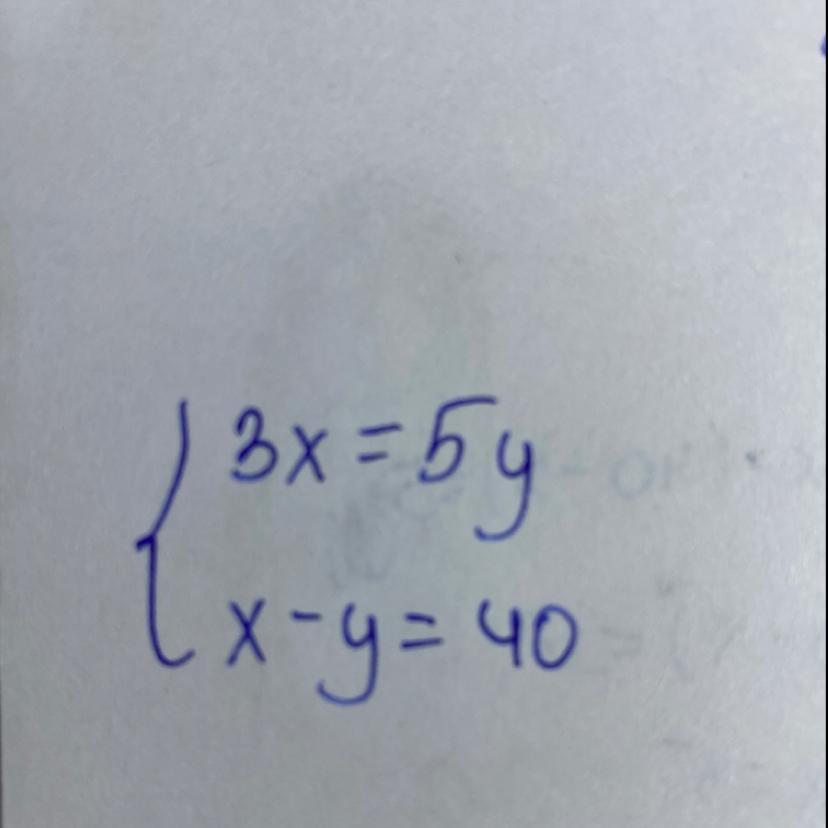 3x = 5y
x - y = 40